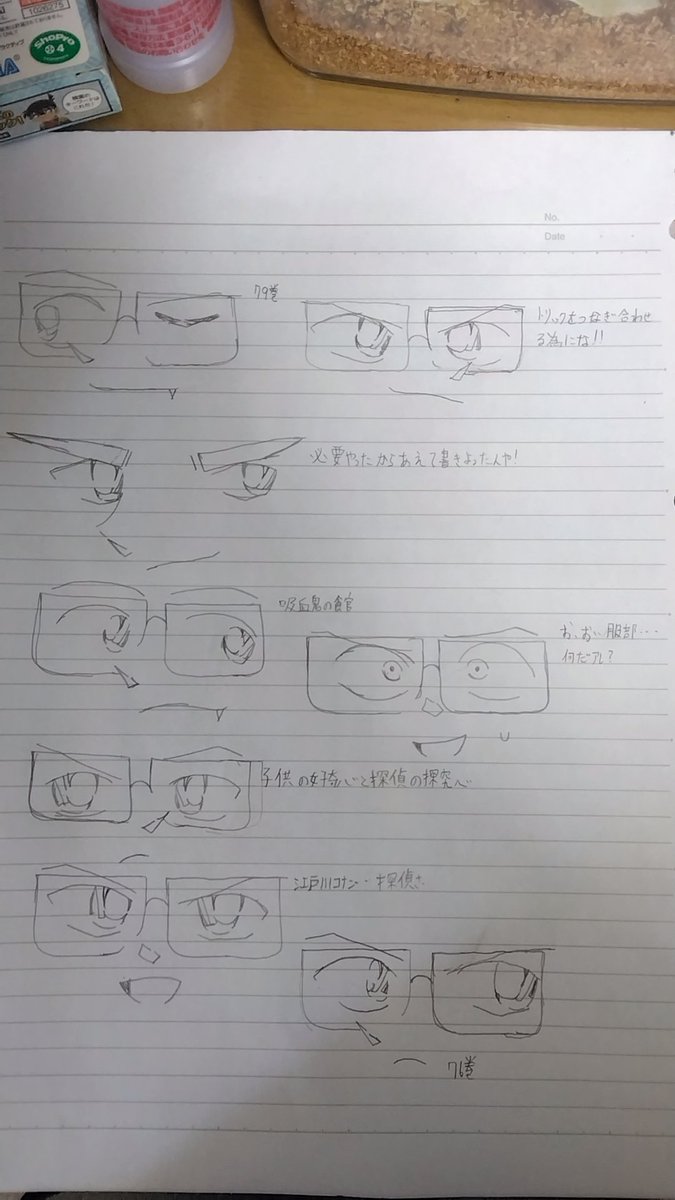 1026275
ShoPro
4
No.
Date
79巻
トリックをつなぎ合わせ
る為にな!!
必要やったからあえて書きよったんや!
吸血鬼の館
お、おい服部…
何だアレ?
子供の好奇心と探偵の探究心
江戸川コナン‥探偵さ
76巻